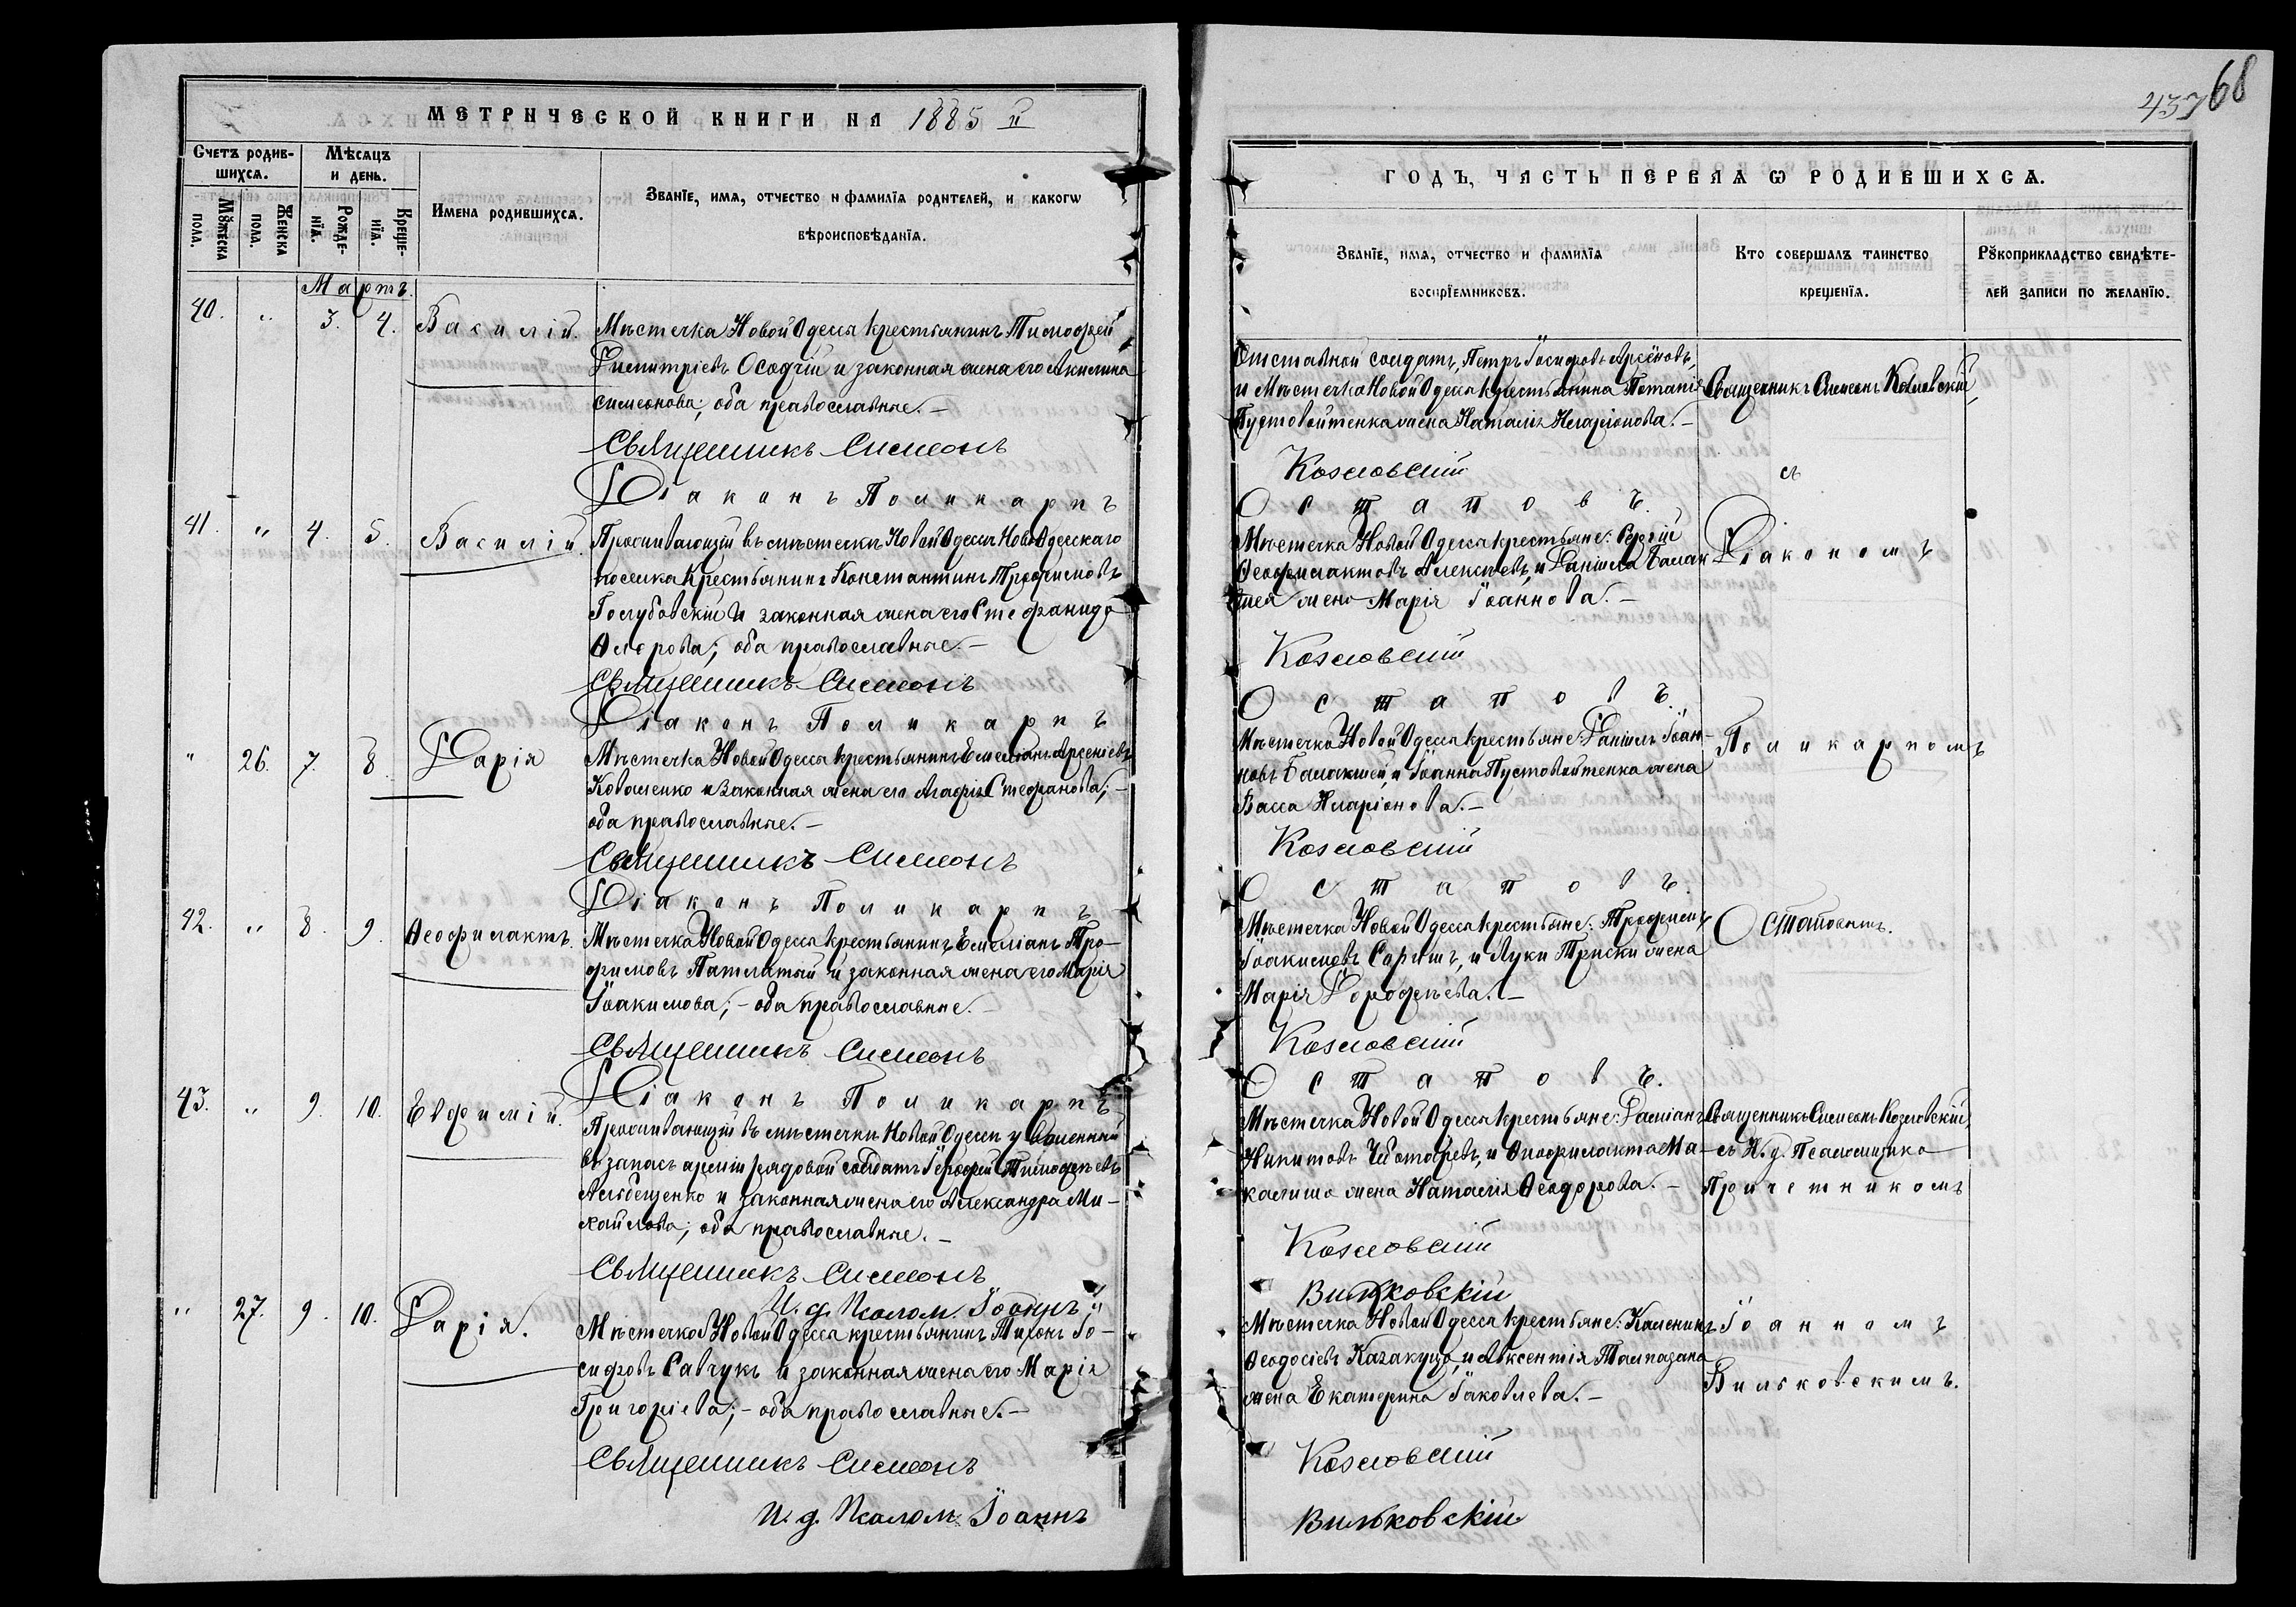 МЕТРИЧЕСКОЙ КНИГИ НА 1885 й
Счетъ родив-
шихсѧ.
Мѣсѧцъ
и день.
Мꙋжеска
пола.
Женска
пола.
Рожде-
нїѧ.
Креще-
нїѧ.
Имена родившихсѧ.
Званїе, имѧ, отчество и фамилїѧ родителей, и какогѡ
вѣроисповѣданїѧ.
Мартъ.
40. " 3. 4. Василій.
Мѣстечка Новой Одессы крестьянинъ Тимофей
Димитріевъ Осадчій и законная жена его Акилина
Симеонова; оба православные. —
Священникъ Симеонъ
Діаконъ Поликарпъ
41. " 4. 5. Василій.
Проживающій въ мѣстечкѣ Новой Одессѣ Ново Одесскаго
поселка крестьянинъ Константинъ Трофимовъ
Голубовскій и законная жена его Стефанида
оба православные. —
Священникъ Симеонъ
Діаконъ Поликарпъ
" 26. 7. 8. Дарія
Мѣстечка Новой Одессы крестьянинъ Емеліанъ Арсеніевъ
Коваленко и законная жена его Агафія Стефанова; —
оба православные. —
Священникъ Симеонъ
Діаконъ Поликарпъ
42. " 8. 9. Ѳеофилактъ.
Мѣстечка Новой Одессы крестьянинъ Емеліанъ Тро-
фимовъ Патлатый и законная жена его Марія
Іоакимова; — оба православные. —
Священникъ Симеонъ
Діаконъ Поликарпъ
43. " 9. 10. Евфимій.
Проживающій въ мѣстечкѣ Новой Одессѣ уволенный
въ запасъ арміи рядовой солдатъ Тимофеевъ
и законная жена его Александра Ми-
хайлова; оба православные. —
Священникъ Симеонъ
И. д. Псалом. Іоаннъ
" 27. 9. 10. Дарія.
Мѣстечка Новой Одессы крестьянинъ Тихонъ Іо-
сифовъ Савчукъ и законная жена его Марія
Григоріева; — оба православные. —
Священникъ Симеонъ
И. д. Псалом. Іоаннъ
437 68
ГОДЪ, ЧАСТЬ ПЕРВАѦ Ѡ РОДИВШИХСѦ.
Званїе, имѧ, отчество и фамилїѧ
воспрїемниковъ.
Кто совершалъ таинство
крещенїѧ.
Рꙋкоприкладство свидѣте-
лей записи по желанїю.
Отставной солдатъ, Петръ Іосифовъ Арсеновъ,
и Мѣстечка Новой Одессы крестьянина Потапія
Пустовойтенка жена Наталія Иларіонова. —
Священникъ Симеонъ Козловскій,
Козловскій
съ
Остаповъ.
Мѣстечка Новой Одессы крестьяне: Сергій
Ѳеофилактовъ Алексѣевъ, и Даніила Балак
шея жена Марія Іоаннова. —
Діакономъ
Козловскій
Остаповъ.
Мѣстечка Новой Одессы крестьяне: Даніилъ Іоан-
новъ Балакшей, и Іоанна Пустовойтенка жена
Васса Иларіонова. —
Поликарпомъ
Козловскій
Остаповъ.
Мѣстечка Новой Одессы крестьяне: Трофимъ
Іоакимовъ и Луки жена
Марія Дорофѣева. —
Остаповымъ.
Козловскій
Остаповъ.
Мѣстечка Новой Одессы крестьяне: Даміанъ
Никитовъ Чеботаревъ, и Ѳеофилакта Ма-
жена Наталія Ѳеодорова. —
Священникъ Симеонъ Козловскій,
съ И. д. Псаломщика
Причетникомъ
Козловскій
Вильковскій
Мѣстечка Новой Одессы крестьяне:
Ѳеодосіевъ и Авксентія
жена Екатерина Іаковлева. —
Іоанномъ
Вильковскимъ.
Козловскій
Вильковскій